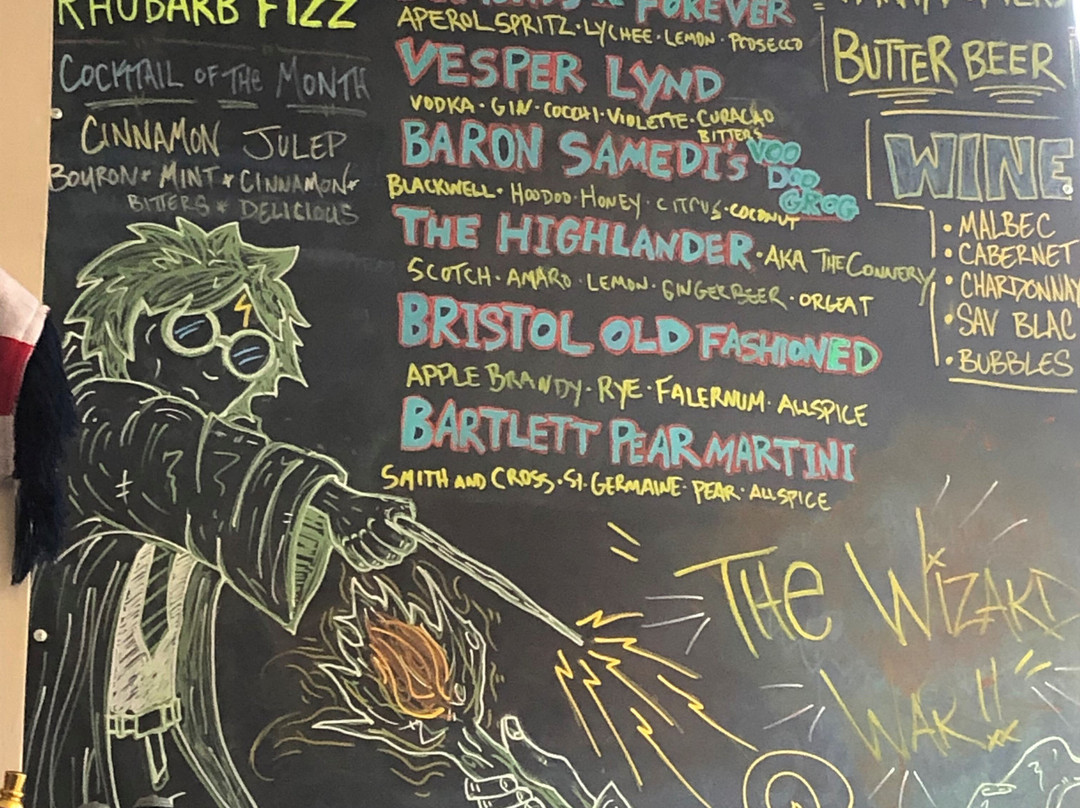 RHUBARB FIZZ
COCKTAIL OF THE MONTH
CINNAMON JULEP
BOURON * MINT * CINNAMON *
BITTERS * DELICIOUS
FOREVER
APEROL SPRITZ · LYCHEE · LEMON · PROSECCO
VESPER LYND
VODKA · GIN · COCCHI · VIOLETTE · CURACAO
BITTERS
BARON SAMEDI'S VOO
DOO
GROG
BLACKWELL · HOODOO · HONEY · CITRUS · COCONUT
THE HIGHLANDER · AKA THE CONNERY
SCOTCH · AMARO · LEMON · GINGERBEER · ORGEAT
BRISTOL OLD FASHIONED
APPLE BRANDY · RYE · FALERNUM · ALLSPICE
BARTLETT PEAR MARTINI
SMITH AND CROSS · ST. GERMAINE · PEAR · ALLSPICE
BUTTER BEER
WINE
• MALBEC
• CABERNET
• CHARDONNAY
• SAV BLAC
• BUBBLES
THE WIZARD
WAK!!